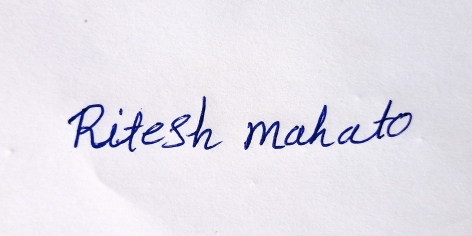 Ritesh mahato